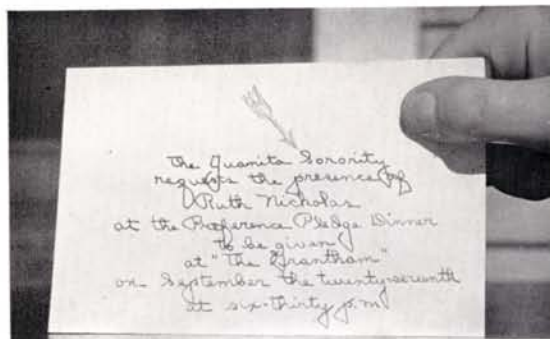 The Juanita Sorority
requests the presence of
Ruth Nicholas
at the Preference Pledge Dinner
to be given
at "The Grantham"
on September the twenty-seventh
at six-thirty p.m